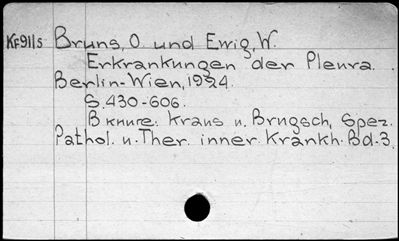 Kf911s Bruns, O. und Ewig, W.
Erkrankungen der Pleura.
Berlin-Wien, 1924.
S. 430-606.
В книге. Kraus u. Brugsch, Spez.
Pathol. u. Ther. inner. Krankh. Bd. 3.